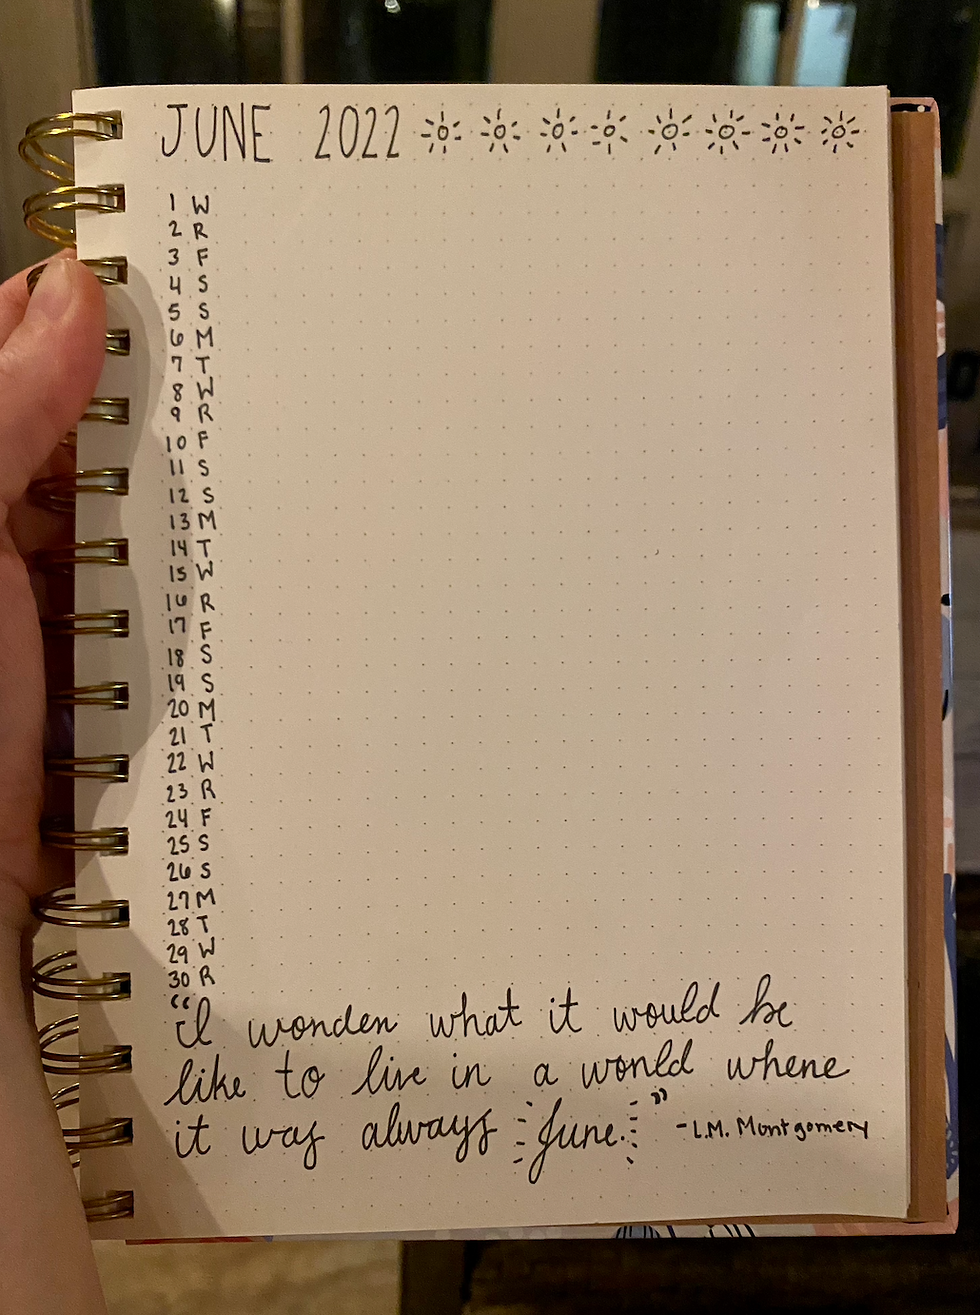 JUNE 2022
1 W
2 R
3 F
4 S
5 S
6 M
7 T
8 W
9 R
10 F
11 S
12 S
13 M
14 T
15 W
16 R
17 F
18 S
19 S
20 M
21 T
22 W
23 R
24 F
25 S
26 S
27 M
28 T
29 W
30 R
“I wonder what it would be
like to live in a world where
it was always June.” -L.M. Montgomery